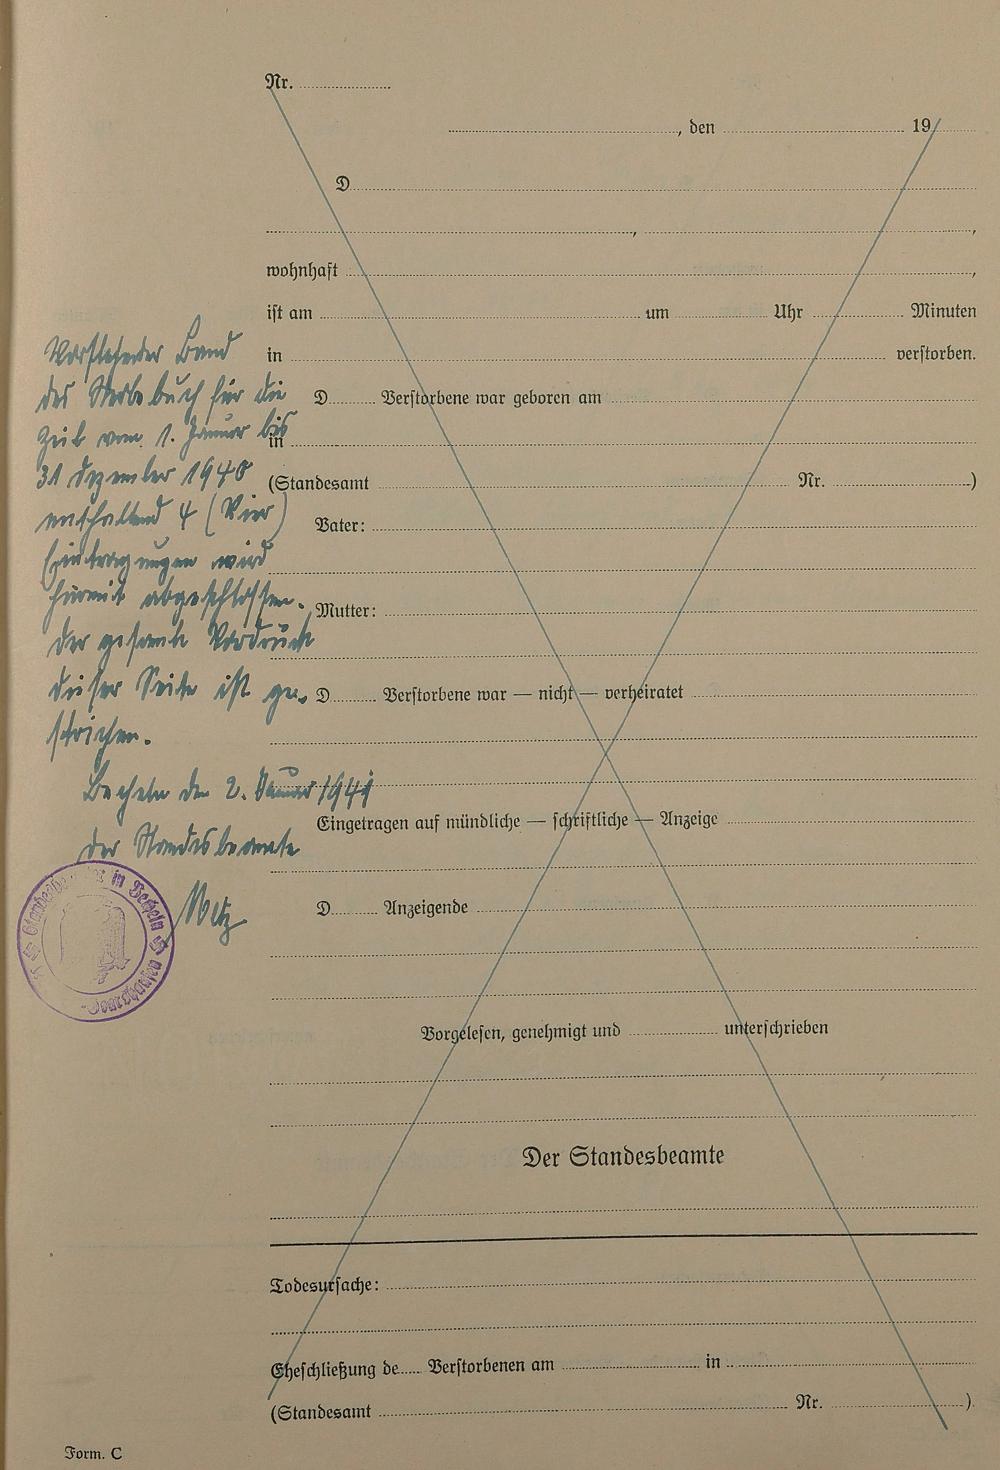 Nr.
, den 19
D
,
wohnhaft ,
ist am um Uhr Minuten
in verstorben.
D Verstorbene war geboren am
in
(Standesamt Nr. )
Vater:
Mutter:
D Verstorbene war — nicht — verheiratet
Eingetragen auf mündliche — schriftliche — Anzeige
D Anzeigende
Vorgelesen, genehmigt und unterschrieben
Der Standesbeamte
Todesursache:
Eheschließung de Verstorbenen am in
(Standesamt Nr. )
Form. C
Vorstehender Band
des Sterbebuch für die
Zeit vom 1. Januar bis
31 Dezember 1940
enthaltend 4 (Vier)
Eintragungen wird
hiermit abgeschlossen.
Der gesamte Vordruck
dieser Seite ist ge-
strichen.
Becheln den 2. Januar 1941
Der Standesbeamte
Metz
Standesbeamte in Becheln